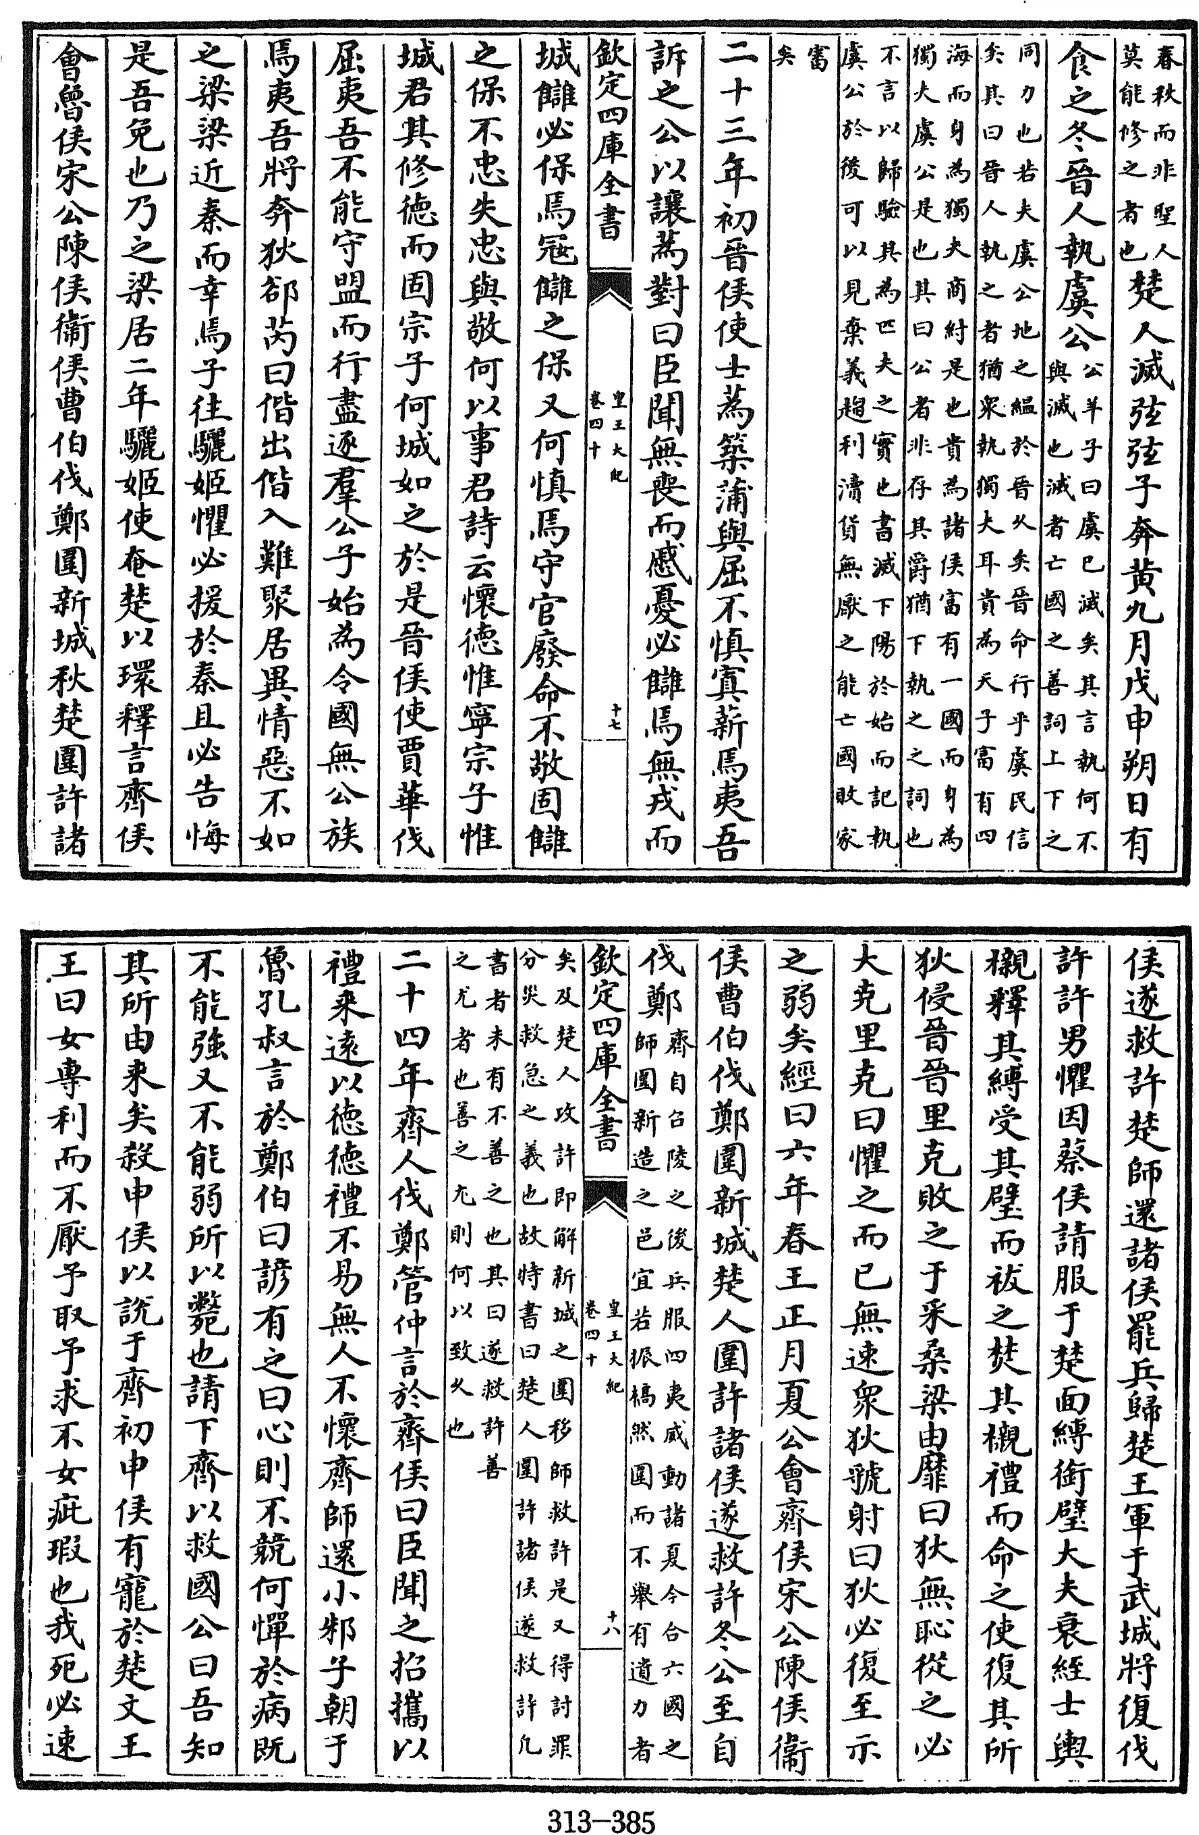 春秋而非聖人
莫能修之者也楚人滅弦弦子奔黄九月戊申朔日有
食之冬晉人執虞公公羊子曰虞已滅矣其言執何不
與滅也滅者亡國之善詞上下之
同力也若夫虞公地之緼於晉久矣晉命行乎虞民信
矣其曰晉人執之者猶衆執獨夫耳貴為天子富有四
海而身為獨夫商紂是也貴為諸侯富有一國而身為
獨夫虞公是也其曰公者非存其爵猶下執之之詞也
不言以歸驗其為匹夫之實也書滅下陽於始而記執
虞公於後可以見棄義趨利瀆貨無厭之能亡國敗家
審
矣
二十三年初晉侯使士蔿築蒲與屈不慎寘薪焉夷吾
訴之公以讓蔿對曰臣聞無喪而慼憂必讎焉無戎而
欽定四庫全書
皇王大紀
卷四十
十七
城讎必保焉冦讎之保又何慎焉守官廢命不敬固讎
之保不忠失忠與敬何以事君詩云懷徳惟寧宗子惟
城君其修徳而固宗子何城如之於是晉侯使賈華伐
屈夷吾不能守盟而行盡逐羣公子始為令國無公族
焉夷吾將奔狄郤芮曰偕出偕入難聚居異情惡不如
之梁梁近秦而幸焉子往驪姬懼必援於秦且必告悔
是吾免也乃之梁居二年驪姬使奄楚以環釋言齊侯
會魯侯宋公陳侯衞侯曹伯伐鄭圍新城秋楚圍許諸
侯遂救許楚師還諸侯罷兵歸楚王軍于武城將復伐
許許男懼因蔡侯請服于楚面縛銜璧大夫衰絰士輿
櫬釋其縛受其璧而祓之焚其櫬禮而命之使復其所
狄侵晉晉里克敗之于采桑梁由靡曰狄無恥從之必
大克里克曰懼之而已無速衆狄虢射曰狄必復至示
之弱矣經曰六年春王正月夏公會齊侯宋公陳侯衞
侯曹伯伐鄭圍新城楚人圍許諸侯遂救許冬公至自
伐鄭齊自召陵之後兵服四夷威動諸夏今合六國之
師圍新造之邑宜若振槁然圍而不舉有遺力者
欽定四庫全書
皇王大紀
卷四十
十八
矣及楚人攻許即解新城之圍移師救許是又得討罪
分災救急之義也故特書曰楚人圍許諸侯遂救許凡
書者未有不善之也其曰遂救許善
之尤者也善之尤則何以致久也
二十四年齊人伐鄭管仲言於齊侯曰臣聞之招攜以
禮来遠以徳徳禮不易無人不懷齊師還小邾子朝于
魯孔叔言於鄭伯曰諺有之曰心則不競何憚於病既
不能強又不能弱所以斃也請下齊以救國公曰吾知
其所由来矣殺申侯以説于齊初申侯有寵於楚文王
王曰女專利而不厭予取予求不女疵瑕也我死必速
313-385